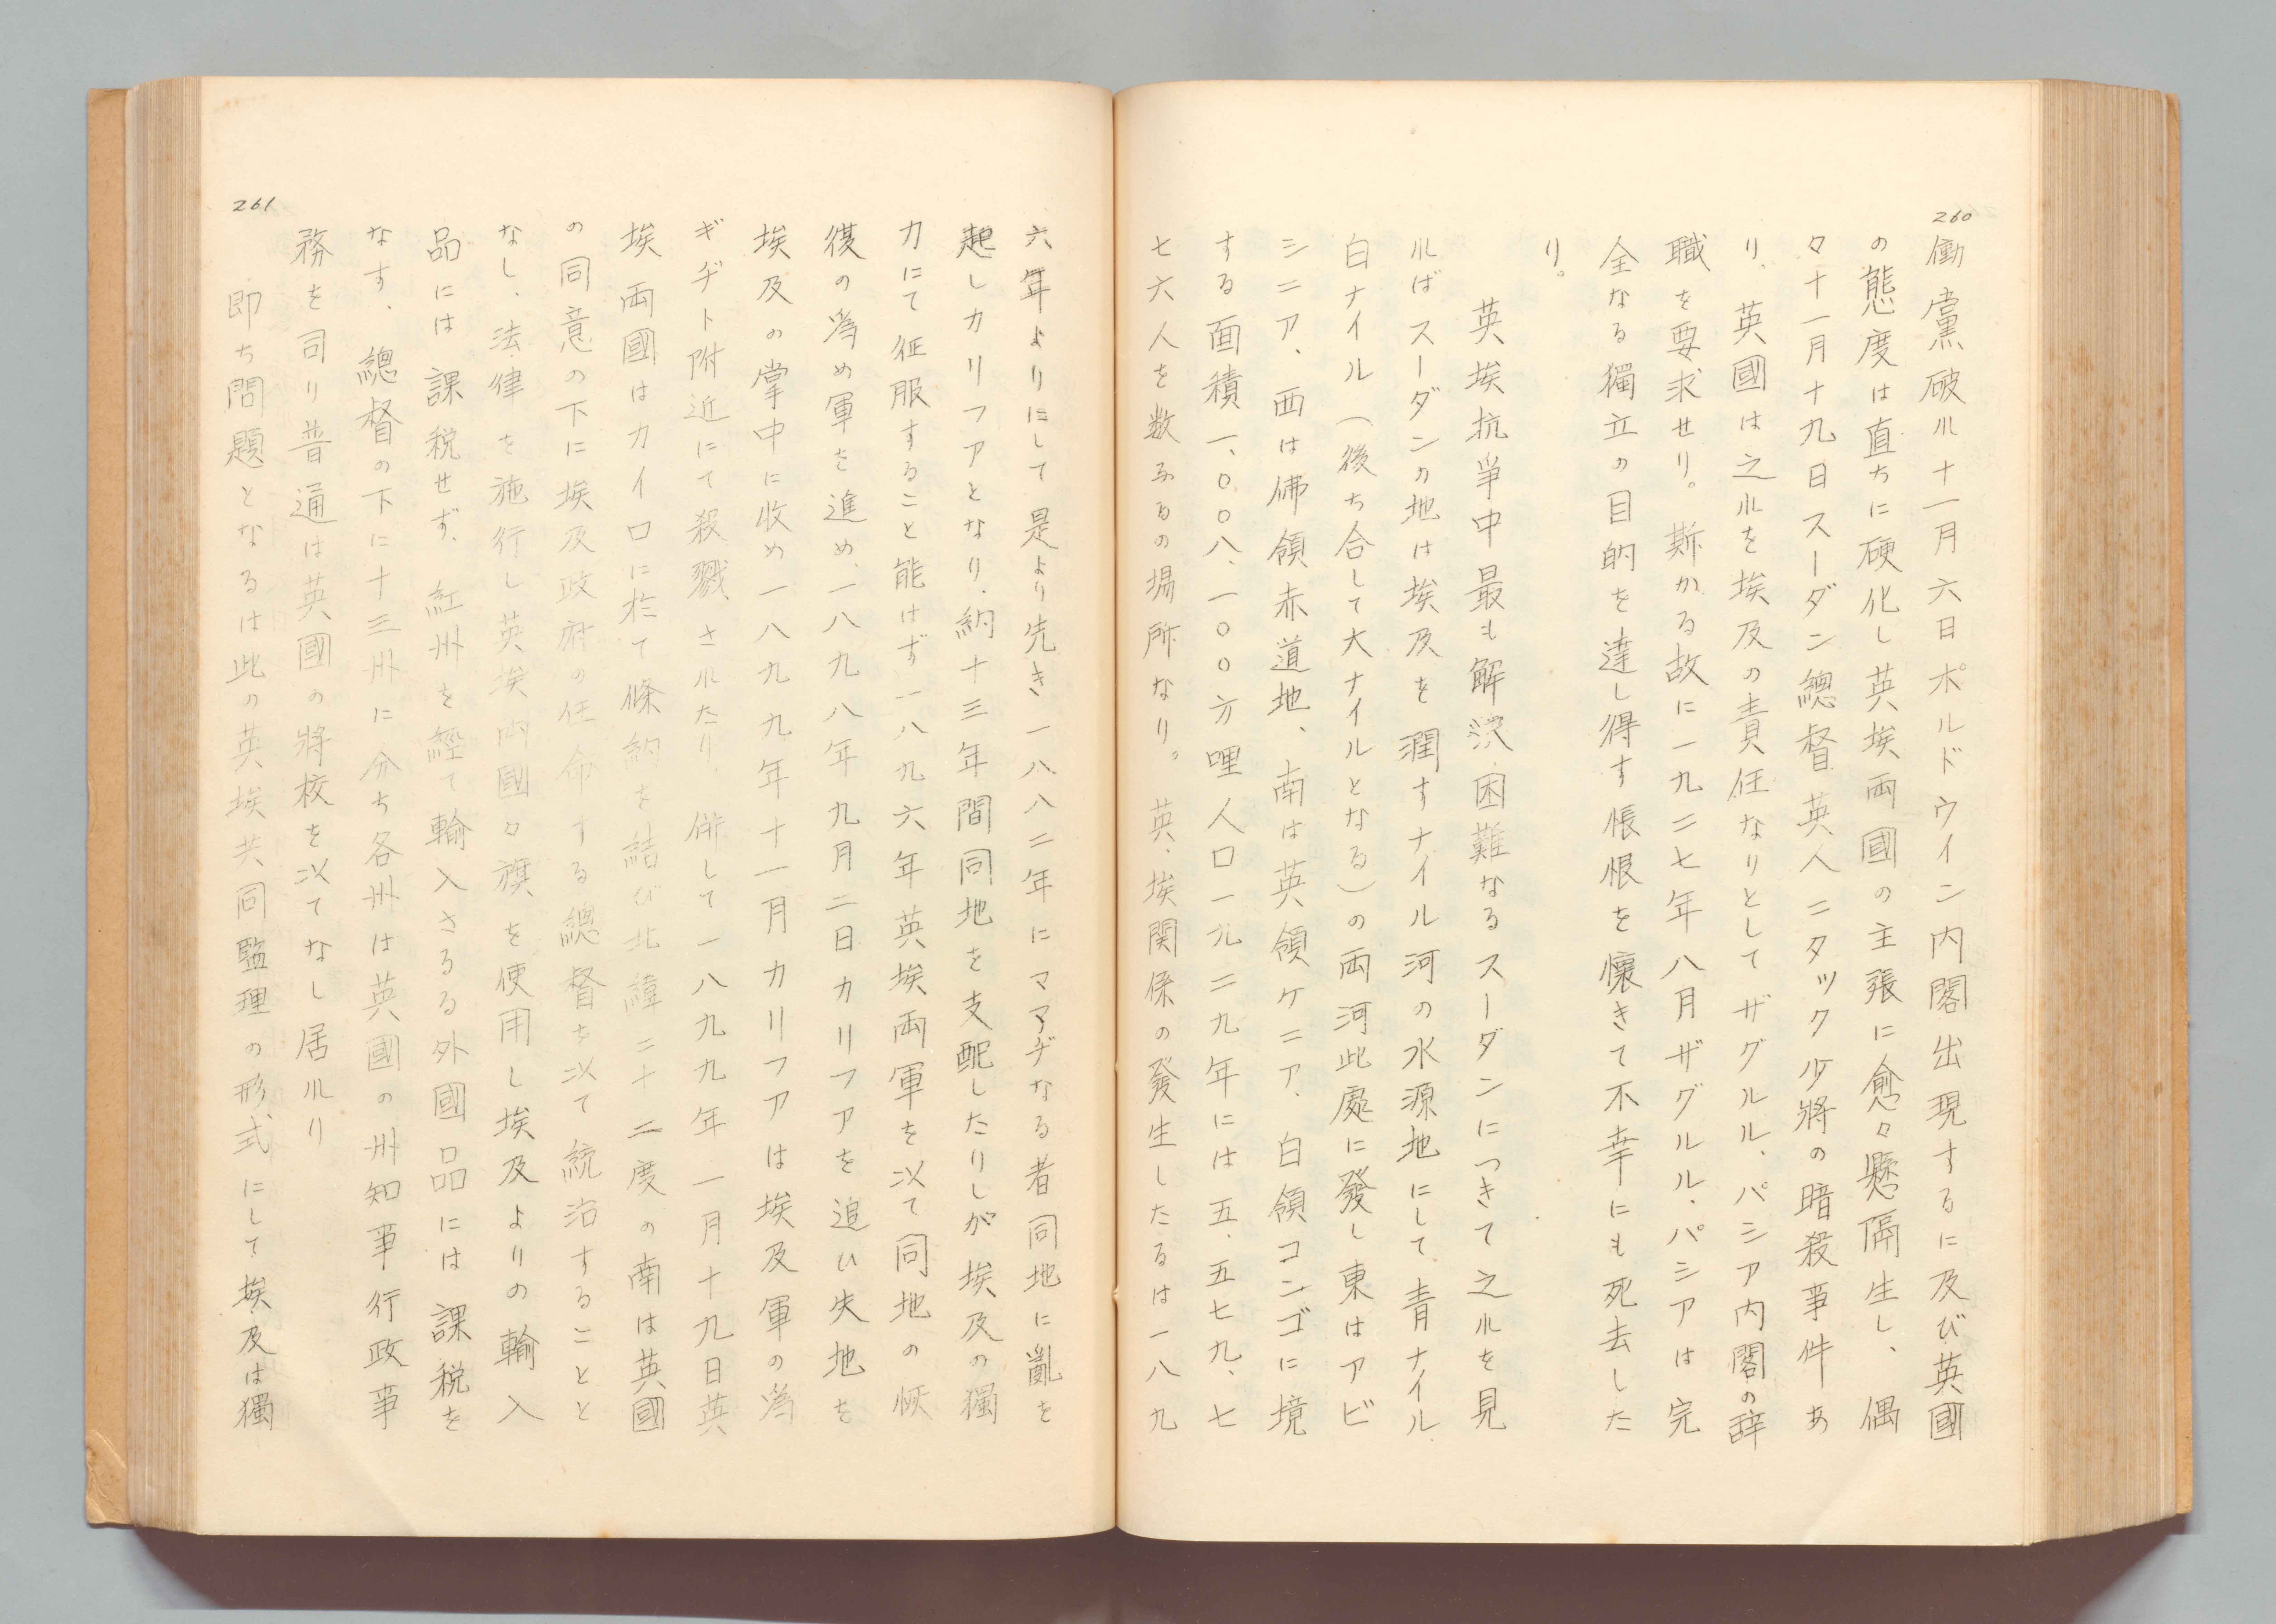 260
働黨破ル十一月六日ポルドウイン内閣出現するに及び英國
の態度は直ちに硬化し英埃両國の主張に愈々懸隔生し、偶
々十一月十九日スーダン總督英人ニタック少將の暗殺事件あ
り、英國は之ルを埃及の責任なりとしてザグルル、パシア内閣の辞
職を要求せり。斯かる故に一九二七年八月ザグルル、パシアは完
全なる獨立の目的を達し得す悵恨を懐きて不幸にも死去した
り。
英埃抗爭中最も解決困難なるスーダンにつきて之ルを見
ルばスーダンの地は埃及を潤すナイル河の水源地にして青ナイル
白ナイル(後ち合して大ナイルとなる)の両河此處に發し東はアビ
シニア、西は佛領赤道地、南は英領ケニア、白領コンゴに境
する面積一、〇〇八、一〇〇方哩人口一九二九年には五、五七九、七
七六人を数ふるの場所なり。英、埃関係の發生したるは一八九
六年よりにして是より先き一八八二年にママヂなる者同地に亂を
起しカリフアとなり、約十三年間同地を支配したりしが埃及の獨
力にて征服すること能はず一八九六年英埃両軍を以て同地の恢
復の為め軍を進め、一八九八年九月二日カリフアを追ひ失地を
埃及の掌中に收め一八九九年十一月カリフアは埃及軍の為
ギヂト附近にて殺戮されたり、併して一八九九年一月十九日英
埃両國はカイロに於て條約を結び北緯二十二度の南は英國
の同意の下に埃及政府の任命する總督を以て統治することと
なし、法律を施行し英埃両國々旗を使用し埃及よりの輸入
品には課税せず、紅州を經て輸入さるる外國品には課税を
なす、總督の下に十三州に分ち各州は英國の州知事行政事
務を司り普通は英國の將校を以てなし居ルり
即ち問題となるは此の英埃共同監理の形式にして埃及は獨
261